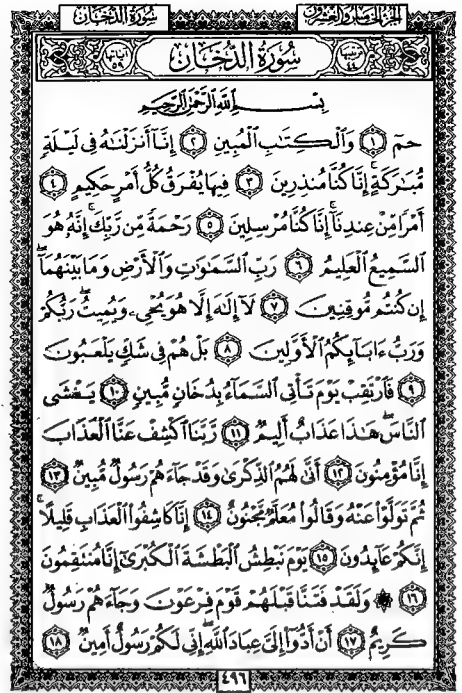 الجزء الخامس والعشرون سورة الدخان
ترتيبها ٤٤ سُورَةُ الدُّخَانِ آياتها ٥٩
بِسْمِ ٱللَّهِ ٱلرَّحْمَٰنِ ٱلرَّحِيمِ
حمٓ ۝١ وَٱلْكِتَٰبِ ٱلْمُبِينِ ۝٢ إِنَّآ أَنزَلْنَٰهُ فِى لَيْلَةٍ
مُّبَٰرَكَةٍ ۚ إِنَّا كُنَّا مُنذِرِينَ ۝٣ فِيهَا يُفْرَقُ كُلُّ أَمْرٍ حَكِيمٍ ۝٤
أَمْرًا مِّنْ عِندِنَآ ۚ إِنَّا كُنَّا مُرْسِلِينَ ۝٥ رَحْمَةً مِّن رَّبِّكَ ۚ إِنَّهُۥ هُوَ
ٱلسَّمِيعُ ٱلْعَلِيمُ ۝٦ رَبِّ ٱلسَّمَٰوَٰتِ وَٱلْأَرْضِ وَمَا بَيْنَهُمَآ ۖ
إِن كُنتُم مُّوقِنِينَ ۝٧ لَآ إِلَٰهَ إِلَّا هُوَ يُحْىِۦ وَيُمِيتُ ۖ رَبُّكُمْ
وَرَبُّ ءَابَآئِكُمُ ٱلْأَوَّلِينَ ۝٨ بَلْ هُمْ فِى شَكٍّ يَلْعَبُونَ
۝٩ فَٱرْتَقِبْ يَوْمَ تَأْتِى ٱلسَّمَآءُ بِدُخَانٍ مُّبِينٍ ۝١٠ يَغْشَى
ٱلنَّاسَ ۖ هَٰذَا عَذَابٌ أَلِيمٌ ۝١١ رَّبَّنَا ٱكْشِفْ عَنَّا ٱلْعَذَابَ
إِنَّا مُؤْمِنُونَ ۝١٢ أَنَّىٰ لَهُمُ ٱلذِّكْرَىٰ وَقَدْ جَآءَهُمْ رَسُولٌ مُّبِينٌ ۝١٣
ثُمَّ تَوَلَّوْا۟ عَنْهُ وَقَالُوا۟ مُعَلَّمٌ مَّجْنُونٌ ۝١٤ إِنَّا كَاشِفُوا۟ ٱلْعَذَابِ قَلِيلًا ۚ
إِنَّكُمْ عَآئِدُونَ ۝١٥ يَوْمَ نَبْطِشُ ٱلْبَطْشَةَ ٱلْكُبْرَىٰٓ إِنَّا مُنتَقِمُونَ
۝١٦ ۞ وَلَقَدْ فَتَنَّا قَبْلَهُمْ قَوْمَ فِرْعَوْنَ وَجَآءَهُمْ رَسُولٌ
كَرِيمٌ ۝١٧ أَنْ أَدُّوٓا۟ إِلَىَّ عِبَادَ ٱللَّهِ ۖ إِنِّى لَكُمْ رَسُولٌ أَمِينٌ ۝١٨
٤٩٦